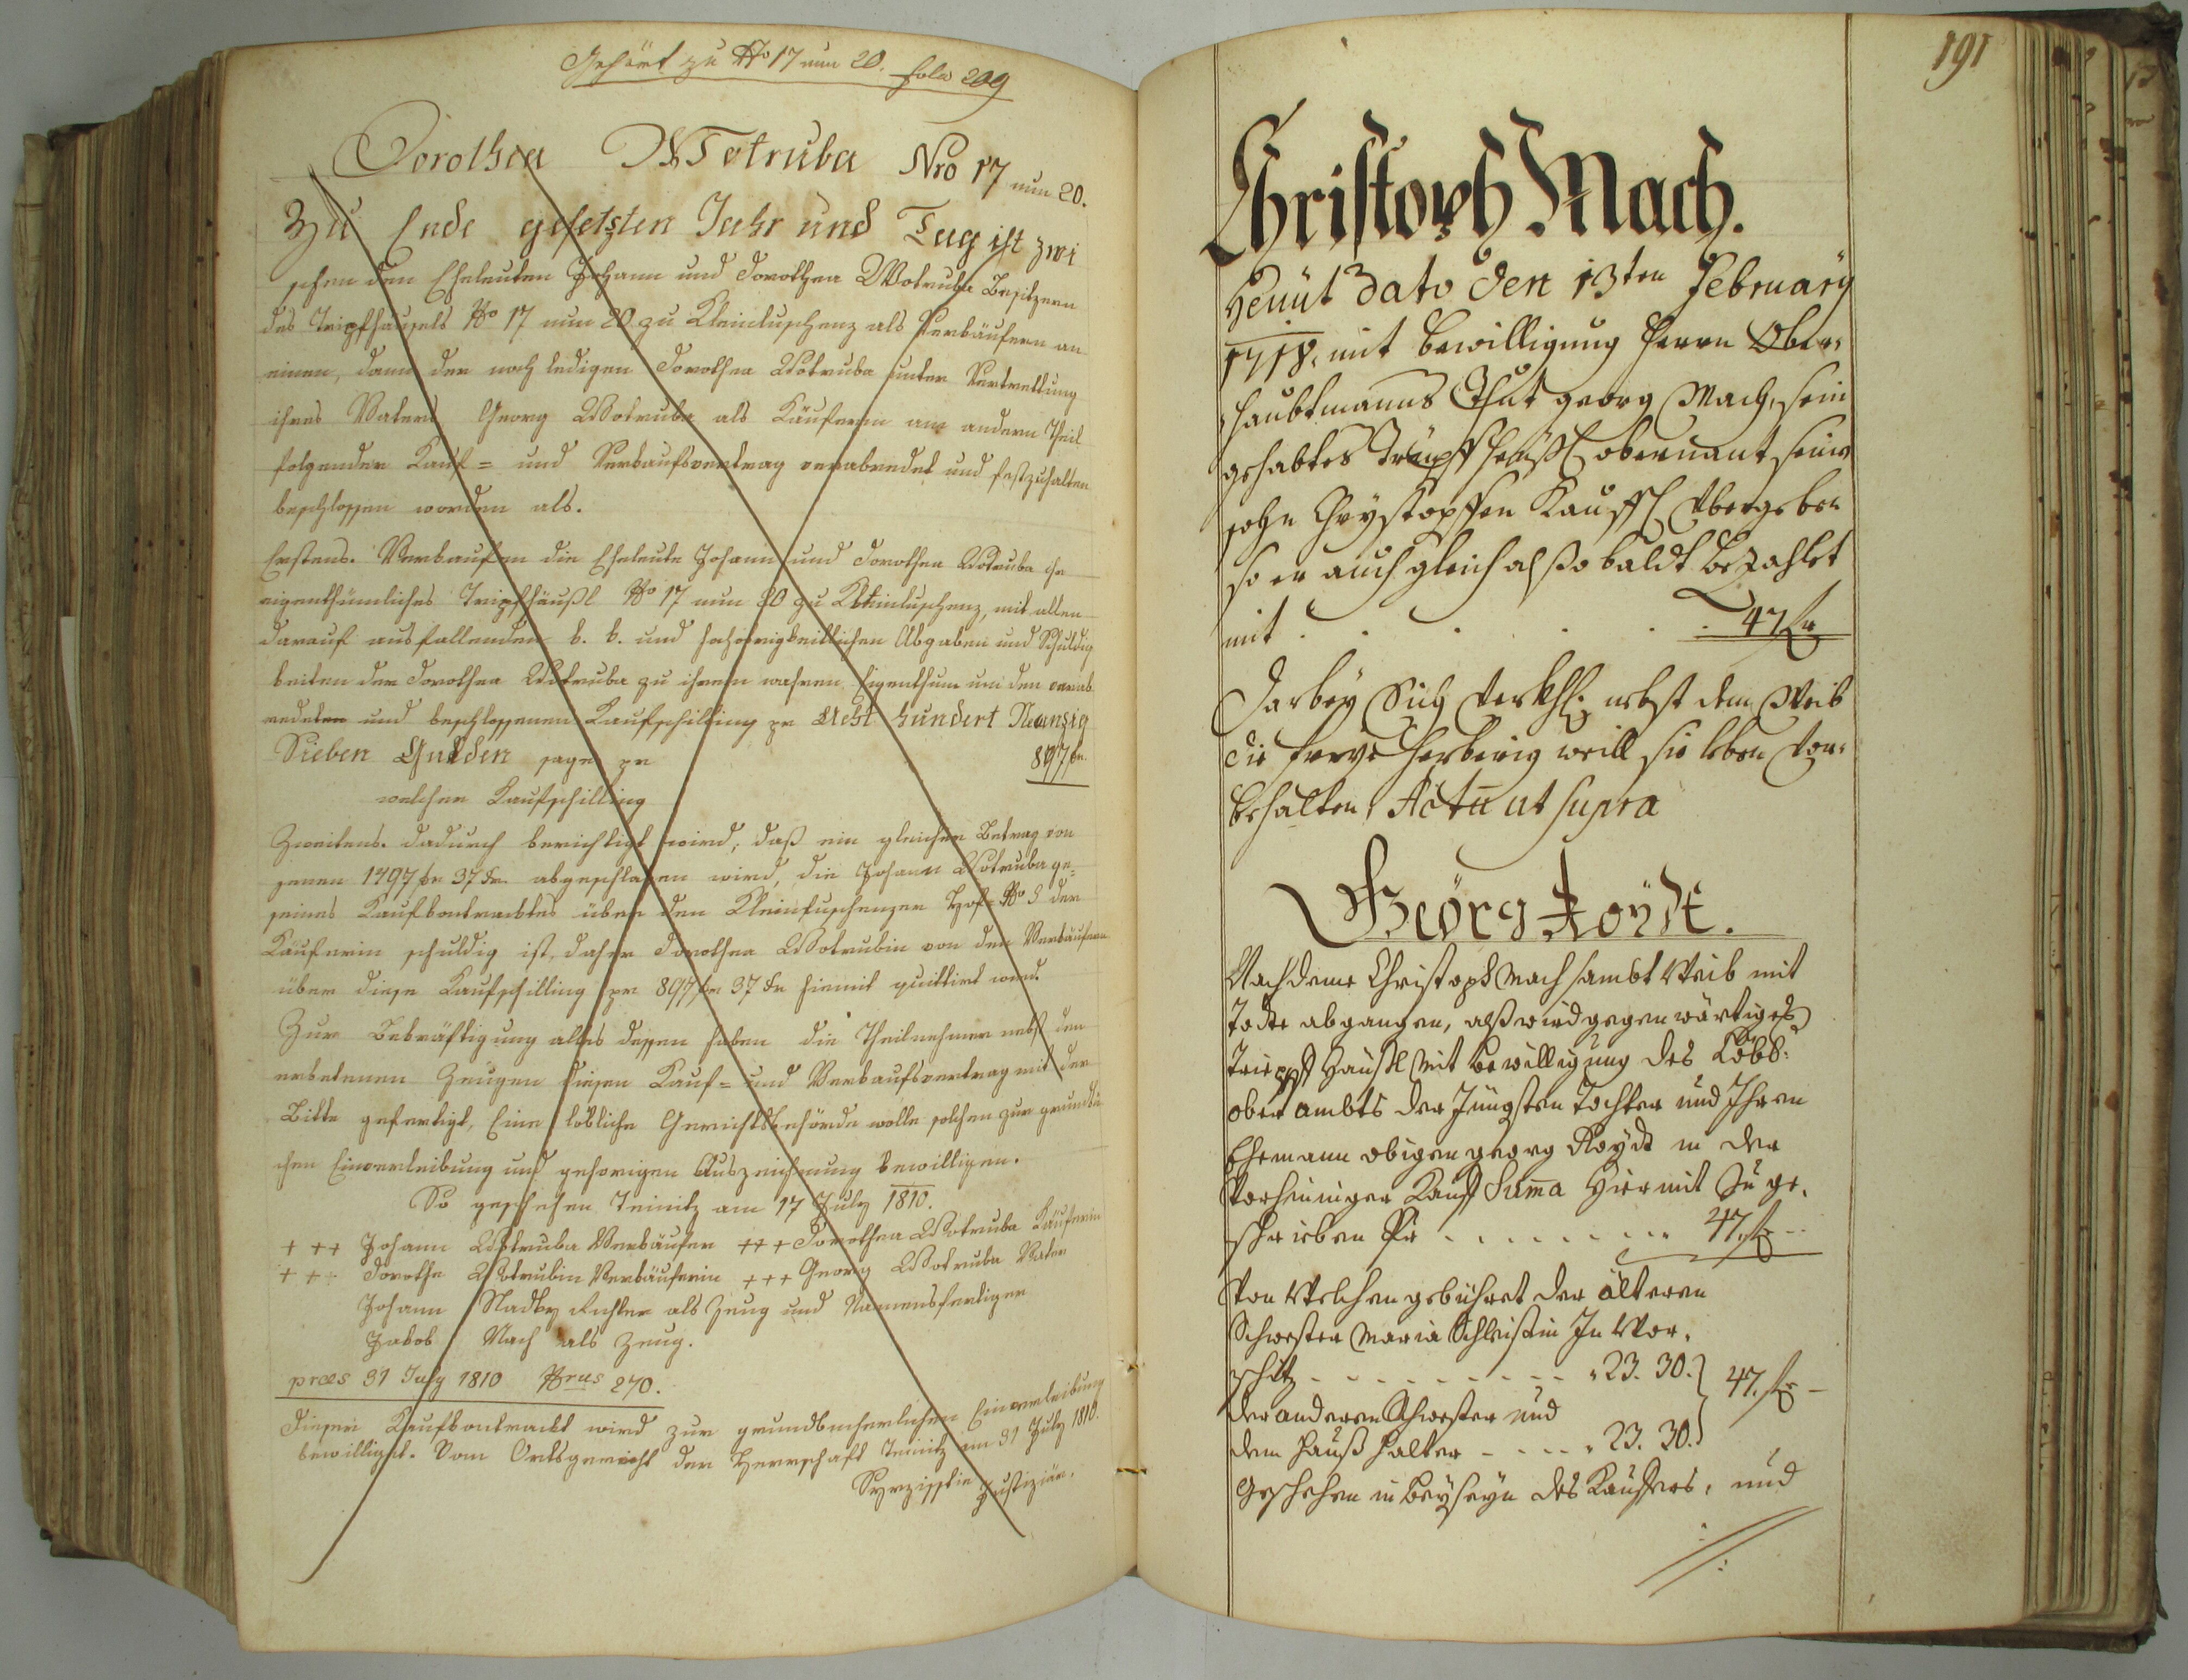 Gehört zu No 17 nun 20. folio 209
Dorothea Wotruba Nro 17 nun 20.
Zu Ende gesetzten Jahr und Tag ist zwi
schen den Eheleuten Johann und Dorothea Wotruba Besitzern
des Tripfhäusels No 17 nun 20 zu Kleinluschenz als Verkäufern an
einen, dann der noch ledigen Dorothea Wotruba unter Vertrettung
ihres Vaters Georg Wotruba als Käuferin am andern Theil
folgender Kauf= und Verkaufsvertrag verabredet und festzuhalten
beschlossen worden als.
Erstens. Verkaufen die Eheleute Johann und Dorothea Wotruba ihr
eigenthümliches Tripfhäußl No 17 nun 20 zu Kleinluschenz, mit allen
darauf ausfallenden k. k. und hochobrigkeitlichen Abgaben und Schuldig
keiten der Dorothea Wotruba zu ihrem wahren Eigenthum um den verab
redeten und beschlossenen Kaufschilling pr Acht hundert Neunzig
Sieben Gulden sage pr 897 fr.
welcher Kaufschilling
Zweitens. dadurch berichtigt wird, daß ein gleicher Betrag von
jenen 1797 fr 37 xr. abgeschlagen wird, die Johann Wotruba ge=
seines Kaufkontraktes über den Kleinluschenzer Hof No 8 der
Käuferin schuldig ist, daher Dorothea Wotrubin von den Verkäufern
über diese Kaufschilling pr 897 fr 37 xr hiemit quittirt wird.
Zur Bekräftigung alles dessen haben die Theilnehmer nebst den
erbetenen Zeugen diesen Kauf= und Verkaufsvertrag mit der
Bitte gefertigt, Eine löbliche Gerichtsbehörde wolle solchen zur grundbü
chen Einverleibung und gehörigen Auszeichnung bewilligen.
So geschehen Teinitz am 17 July 1810.
+++ Johann Wotruba Verkäufer +++ Dorothea Wotruba Käuferin
+++ Dorothe Wotrubin Verkäuferin +++ Georg Wotruba Vater
Johann Richter als Zeug und Namensfertiger
Jakob Mach als Zeug.
praes 31 July 1810 Nrus 270.
Dieser Kaufkontrackt wird zur grundbucherlichen Einverleibung
bewilligt. Vom Ortsgericht der Herrschaft Teinitz am 31 July 1810.
Justiziär.
191
Christoph Mach.
Heüut Dato den 13ten February
1718. mit bewilligung Herrn Ober=
haubtmanns Thut georg Mach, sein
gehabtes Trüpff heüßl obernant seinen
sohn Chrystopffen Kauffl. Vbergeben
so er auch gleich alßo baldt bezahlet
mit . . . . . 47 fr
Darbey Sich Verkh: nebst dem Weib
die freye herberig weill sie leben Vor=
behalten, Actu ut supra
Geörg Roÿdt.
Nachdeme Christoph Mach sambt Weib mit
Todte abgangen, alß wird gegenwärtiges
Triepff Haußl mit bewilligung des Löbl:
ober ambts der Jüngsten Tochter und Ihren
Ehemann obigen georg Roydt in der
Vorheringer Kauff Suma hiermit Zu ge=
schrieben Pr . . . . . 47. fr --
Von Welchen gebühret der älteren
Schwester Maria Schleistin In Wor=
schitz - - - - - 23. 30. } 47. fr -
der anderen Schwester und
dem Haußhalter - - - - 23. 30. }
Geschehen in beyseyn des Kauffers, und